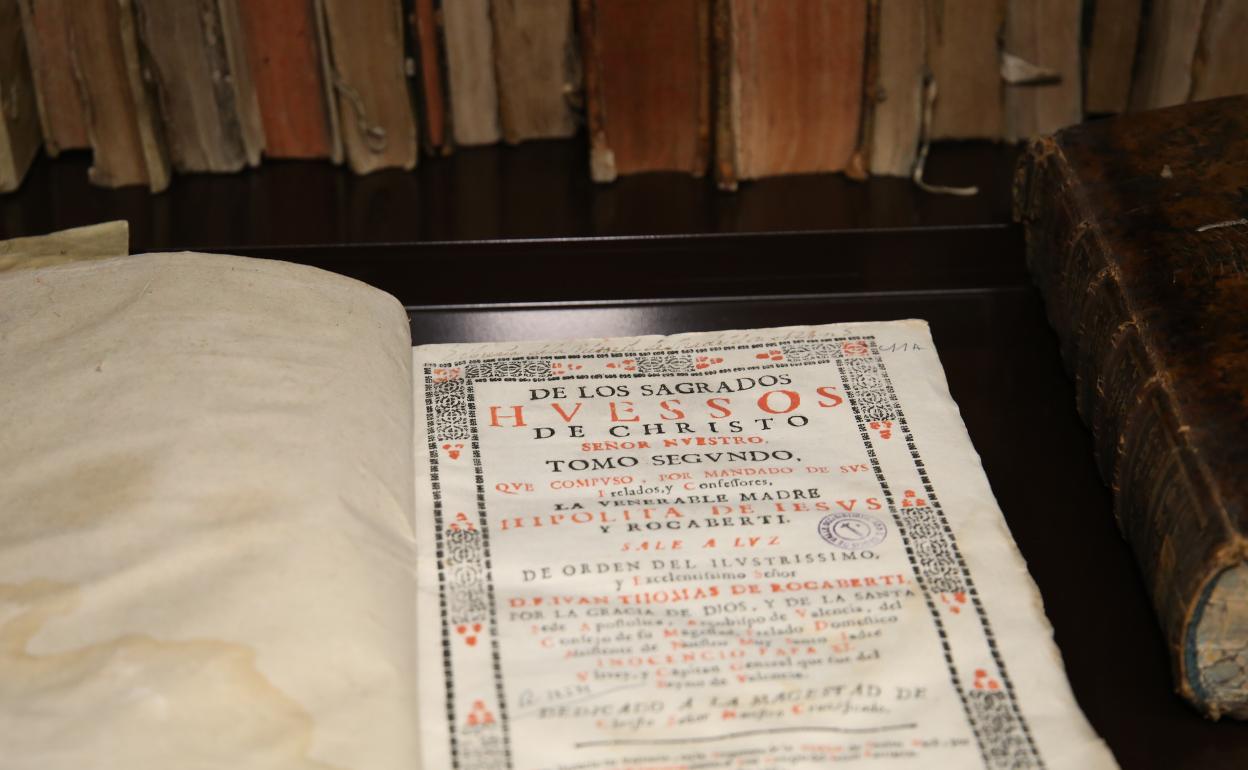 DE LOS SAGRADOS
HVESSOS
DE CHRISTO
SEÑOR NVESTRO.
TOMO SEGVNDO,
QVE COMPVSO, POR MANDADO DE SVS
Prelados, y Confeſſores,
LA VENERABLE MADRE
HIPOLITA DE IESVS
Y ROCABERTI.
SALE A LVZ
DE ORDEN DEL ILVSTRISSIMO,
y Excelentiſsimo Señor
D. F. IVAN THOMAS DE ROCABERTI,
POR LA GRACIA DE DIOS, Y DE LA SANTA
Sede Apoſtolica, Arçobiſpo de Valencia, del
Conſejo de ſu Mageſtad, Prelado Domeſtico
Aſsiſtente de Nueſtro Muy Santo Padre
INOCENCIO PAPA XI.
Virrey, y Capitan General que fue del
Reyno de Valencia.
DEDICADO A LA MAGESTAD DE
Chriſto Señor Nueſtro Crucificado.